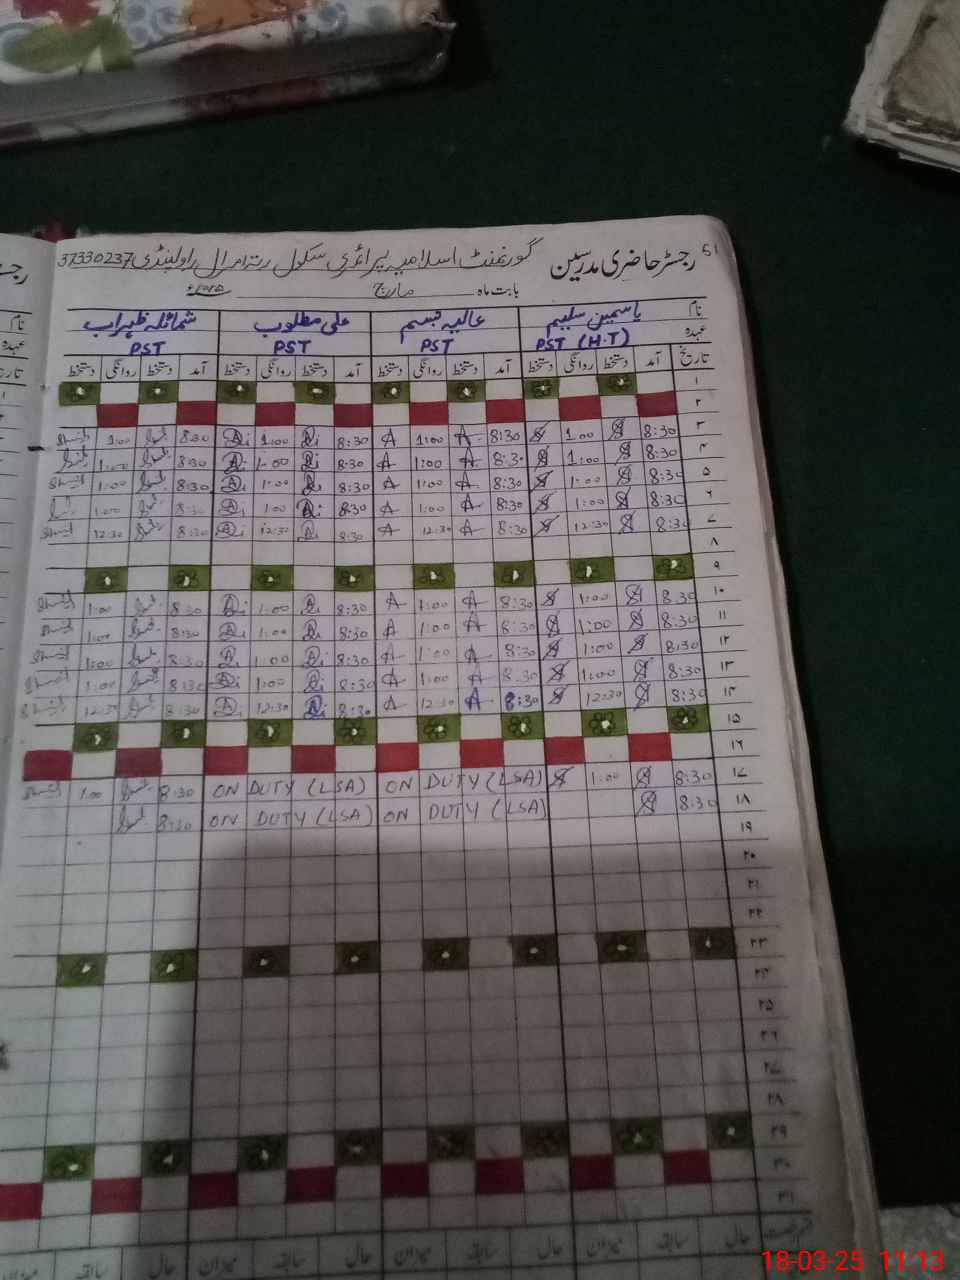 رجسٹر حاضری مدرسین گورنمنٹ اسلامیہ پرائمری سکول رتہ امرال راولپنڈی 37330237
بابت ماہ مارچ
نام یاسمین سلیم عالیہ تبسم علی مطلوب شمائلہ ظہراب
عہدہ PST (H.T) PST PST PST
تاریخ آمد دستخط روانگی دستخط آمد دستخط روانگی دستخط آمد دستخط روانگی دستخط آمد دستخط روانگی دستخط
۱
۲
۳ 8:30 1:00 8:30 A 1:00 A 8:30 1:00 8:30 1:00
۴ 8:30 1:00 8:30 A 1:00 A 8:30 1:00 8:30 1:00
۵ 8:30 1:00 8:30 A 1:00 A 8:30 1:00 8:30 1:00
۶ 8:30 1:00 8:30 A 1:00 A 8:30 1:00 8:30 1:00
۷ 8:30 12:30 8:30 A 12:30 A 8:30 12:30 8:30 12:30
۸
۹
۱۰ 8:30 1:00 8:30 A 1:00 A 8:30 1:00 8:30 1:00
۱۱ 8:30 1:00 8:30 A 1:00 A 8:30 1:00 8:30 1:00
۱۲ 8:30 1:00 8:30 A 1:00 A 8:30 1:00 8:30 1:00
۱۳ 8:30 1:00 8:30 A 1:00 A 8:30 1:00 8:30 1:00
۱۴ 8:30 12:30 8:30 A 12:30 A 8:30 12:30 8:30 12:30
۱۵
۱۶
۱۷ 8:30 1:00 ON DUTY (LSA) ON DUTY (LSA) 8:30 1:00
۱۸ 8:30 ON DUTY (LSA) ON DUTY (LSA) 8:30
۱۹
۲۰
۲۱
۲۲
۲۳
۲۴
۲۵
۲۶
۲۷
۲۸
۲۹
۳۰
۳۱
حال سابقہ میزان حال سابقہ میزان حال سابقہ میزان حال سابقہ میزان
18-03-25 11:13